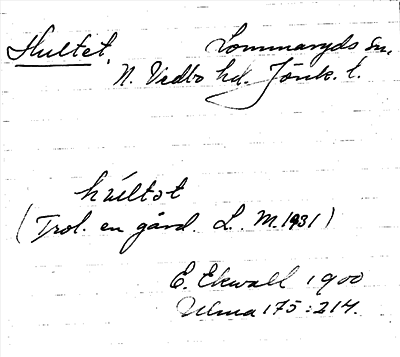 Hultet. Lommaryds sn.
N. Vedbo hd. Jönk. l.
húltǝt
(Trol. en gård. L. M. 1931)
E. Ekwall 1900
Ulma 175:214.